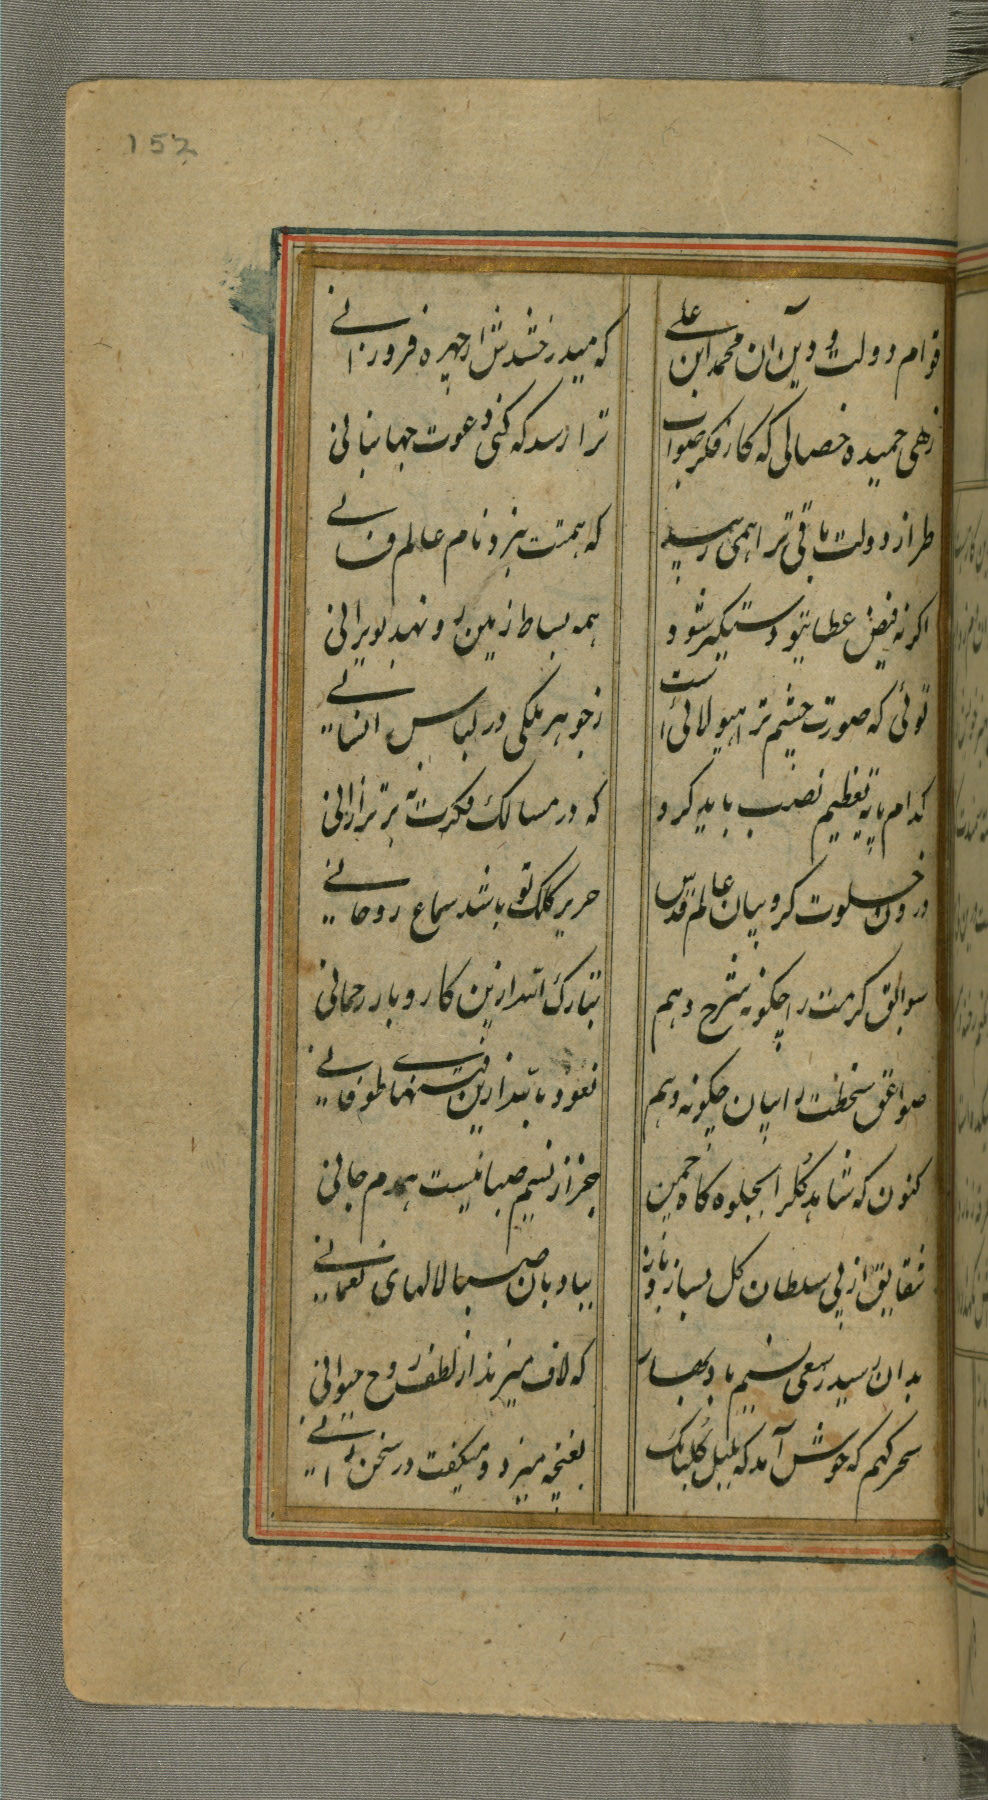 152
قوام دولت و دین آن محمد ابن علی
که میدرخشدش از چهره فر ورانی
زهی حمیده خصالی که کاه فکر صواب
ترا رسد که کنی دعوت جهانبانی
طراز دولت باقی ترا همی زیبد
که همتت نبرد نام عالم فانی
اگر نه فیض عطایتو دستگیر شود
همه بساط زمین رو نهد بویرانی
توئی که صورت جسم ترا هیولائی است
ز جوهر ملکی در لباس انسانی
کدام پایه تعظیم نصب باید کرد
که در مسالک فکرت نه برتر از آنی
درون خلوت کروبیان عالم قدس
حریر کلک تو باشد سماع روحانی
سوابق کرمت را چکونه شرح دهم
تبارک الله ازین کار و بار رحمانی
صواعق سخطت را بیان چکونه دهم
نعوذ بالله ازین فتنهای طوفانی
کنون که شاهد کل را بجلوه کاه چمن
جز از نسیم صبا نیست همدم جانی
شقایق از پی سلطان کل بسازد باز
بباد بان صبا لالهای نعمانی
بدان رسید ز سعی نسیم باد بهار
که لاف میزند از لطف روح حیوانی
سحر کهم که خوش آمد که بلبل کلبانک
بغنچه میزد و میکفت در سخن رانی